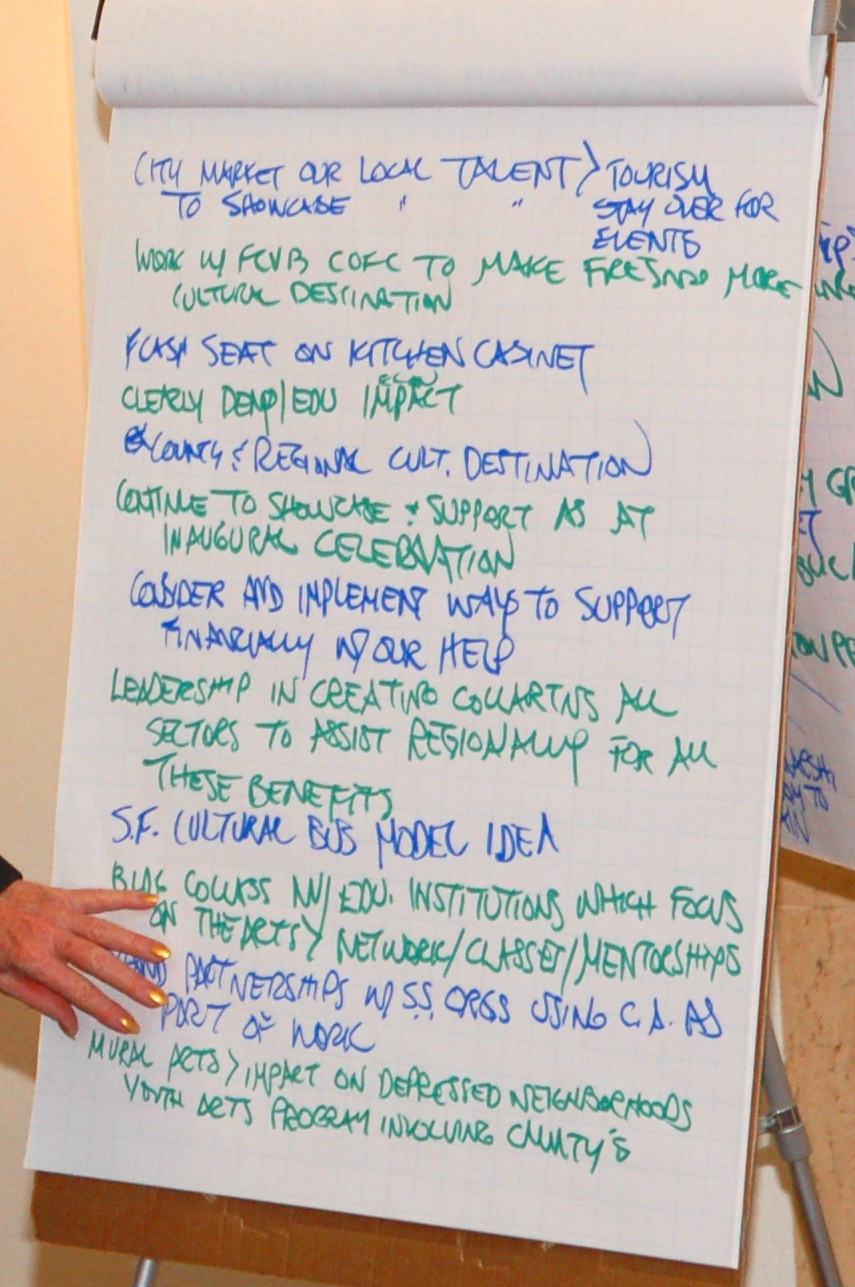 CITY MARKET OUR LOCAL TALENT > TOURISM
TO SHOWCASE " " STAY OVER FOR
EVENTS
WORK W/ FCVB COFC TO MAKE FRESNO MORE
CULTURAL DESTINATION
SEAT ON KITCHEN CABINET
CLEARLY DEMO/EDU ECON IMPACT
COUNTY & REGIONAL CULT. DESTINATION
CONTINUE TO SHOWCASE & SUPPORT AS AT
INAUGURAL CELEBRATION
CONSIDER AND IMPLEMENT WAYS TO SUPPORT
FINANCIALLY W/ OUR HELP
LEADERSHIP IN CREATING ALL
SECTORS TO ASSIST REGIONALLY FOR ALL
THESE BENEFITS
S.F. CULTURAL BUS MODEL IDEA
W/ EDU. INSTITUTIONS WHICH FOCUS
ON THE ARTS > NETWORK/CLASSES/MENTORSHIPS
PARTNERSHIPS W/ S.S. ORGS USING C.A. AS
PART OF WORK
MURAL ARTS > IMPACT ON DEPRESSED NEIGHBORHOODS
YOUTH ARTS PROGRAM INVOLVING CMUTY'S